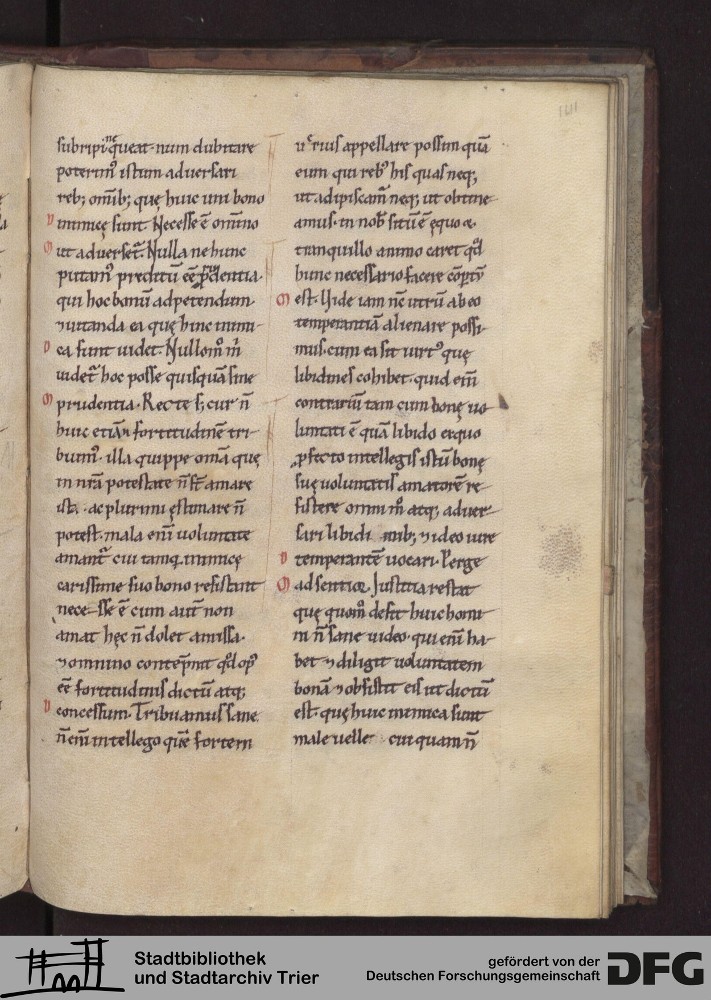 subripi q̄ queat· num dubitare
poterim᷒ istum aduersari
reb; omīb; quę huic uni bono
inimicę sunt. Necesse ē omnino
ut aduerset᷑. Nulla ne hunc
putam᷒ preditū eē prudentia·
qui hoc bonū adpetendum·
⁊ uitanda ea quę huic inimi
ca sunt uidet. Nullom̊ m̄
uidet᷑ hoc posse quisquā sine
prudentia. Recte s; cur n̄
huic etiā fortitudinē tri
buim᷒. illa quippe omīa quę
in nr̄a potestate n̄ st̄ amare
iste ac plurimi ęstimare n̄
potest. mala enī uoluntate
amant᷑ cui tamq̄ inimicę
carissime suo bono resistant
nece sse ē cum aut̄ non
amat hęc n̄ dolet amissa·
⁊ omnino contēpnit qd̄ op᷒
eē fortitudinis dictū atq;
concessum. Tribuamus sane.
n̄ enī intellego quē fortem
uerius appellare possim quā
eum qui reb᷒ his quas neq;
ut adipiscam᷑ neq; ut obtine
amus. in nob̄ sitū ē ęquo &
tranquillo animo caret qd̄
hunc necessario facere cōptū
est. Uide iam nc̄ utrū ab eo
temperantiā alienare possi
mus. cum ea sit uirt᷒ quę
libidines cohibet. quid enī
contrariū tam cum bonę uo
luntati ē quā libido ex quo
ꝓfecto intellegis istū bonę
suę uoluntatis amatorē re
sistere omni m̊ atq; aduer
sari libidi nib; ⁊ ideo iure
temperantē uocari. Perge
adsentior. Iustitia restat
quę quom̊ desit huic homi
ni n̄ sane uideo. qui enī ha
bet ⁊ diligit uoluntatem
bonā ⁊ obsistit eis ut dictū
est. quę huic inimica sunt
male uelle cuiquam n̄
Stadtbibliothek
und Stadtarchiv Trier
gefördert von der
Deutschen Forschungsgemeinschaft
DFG